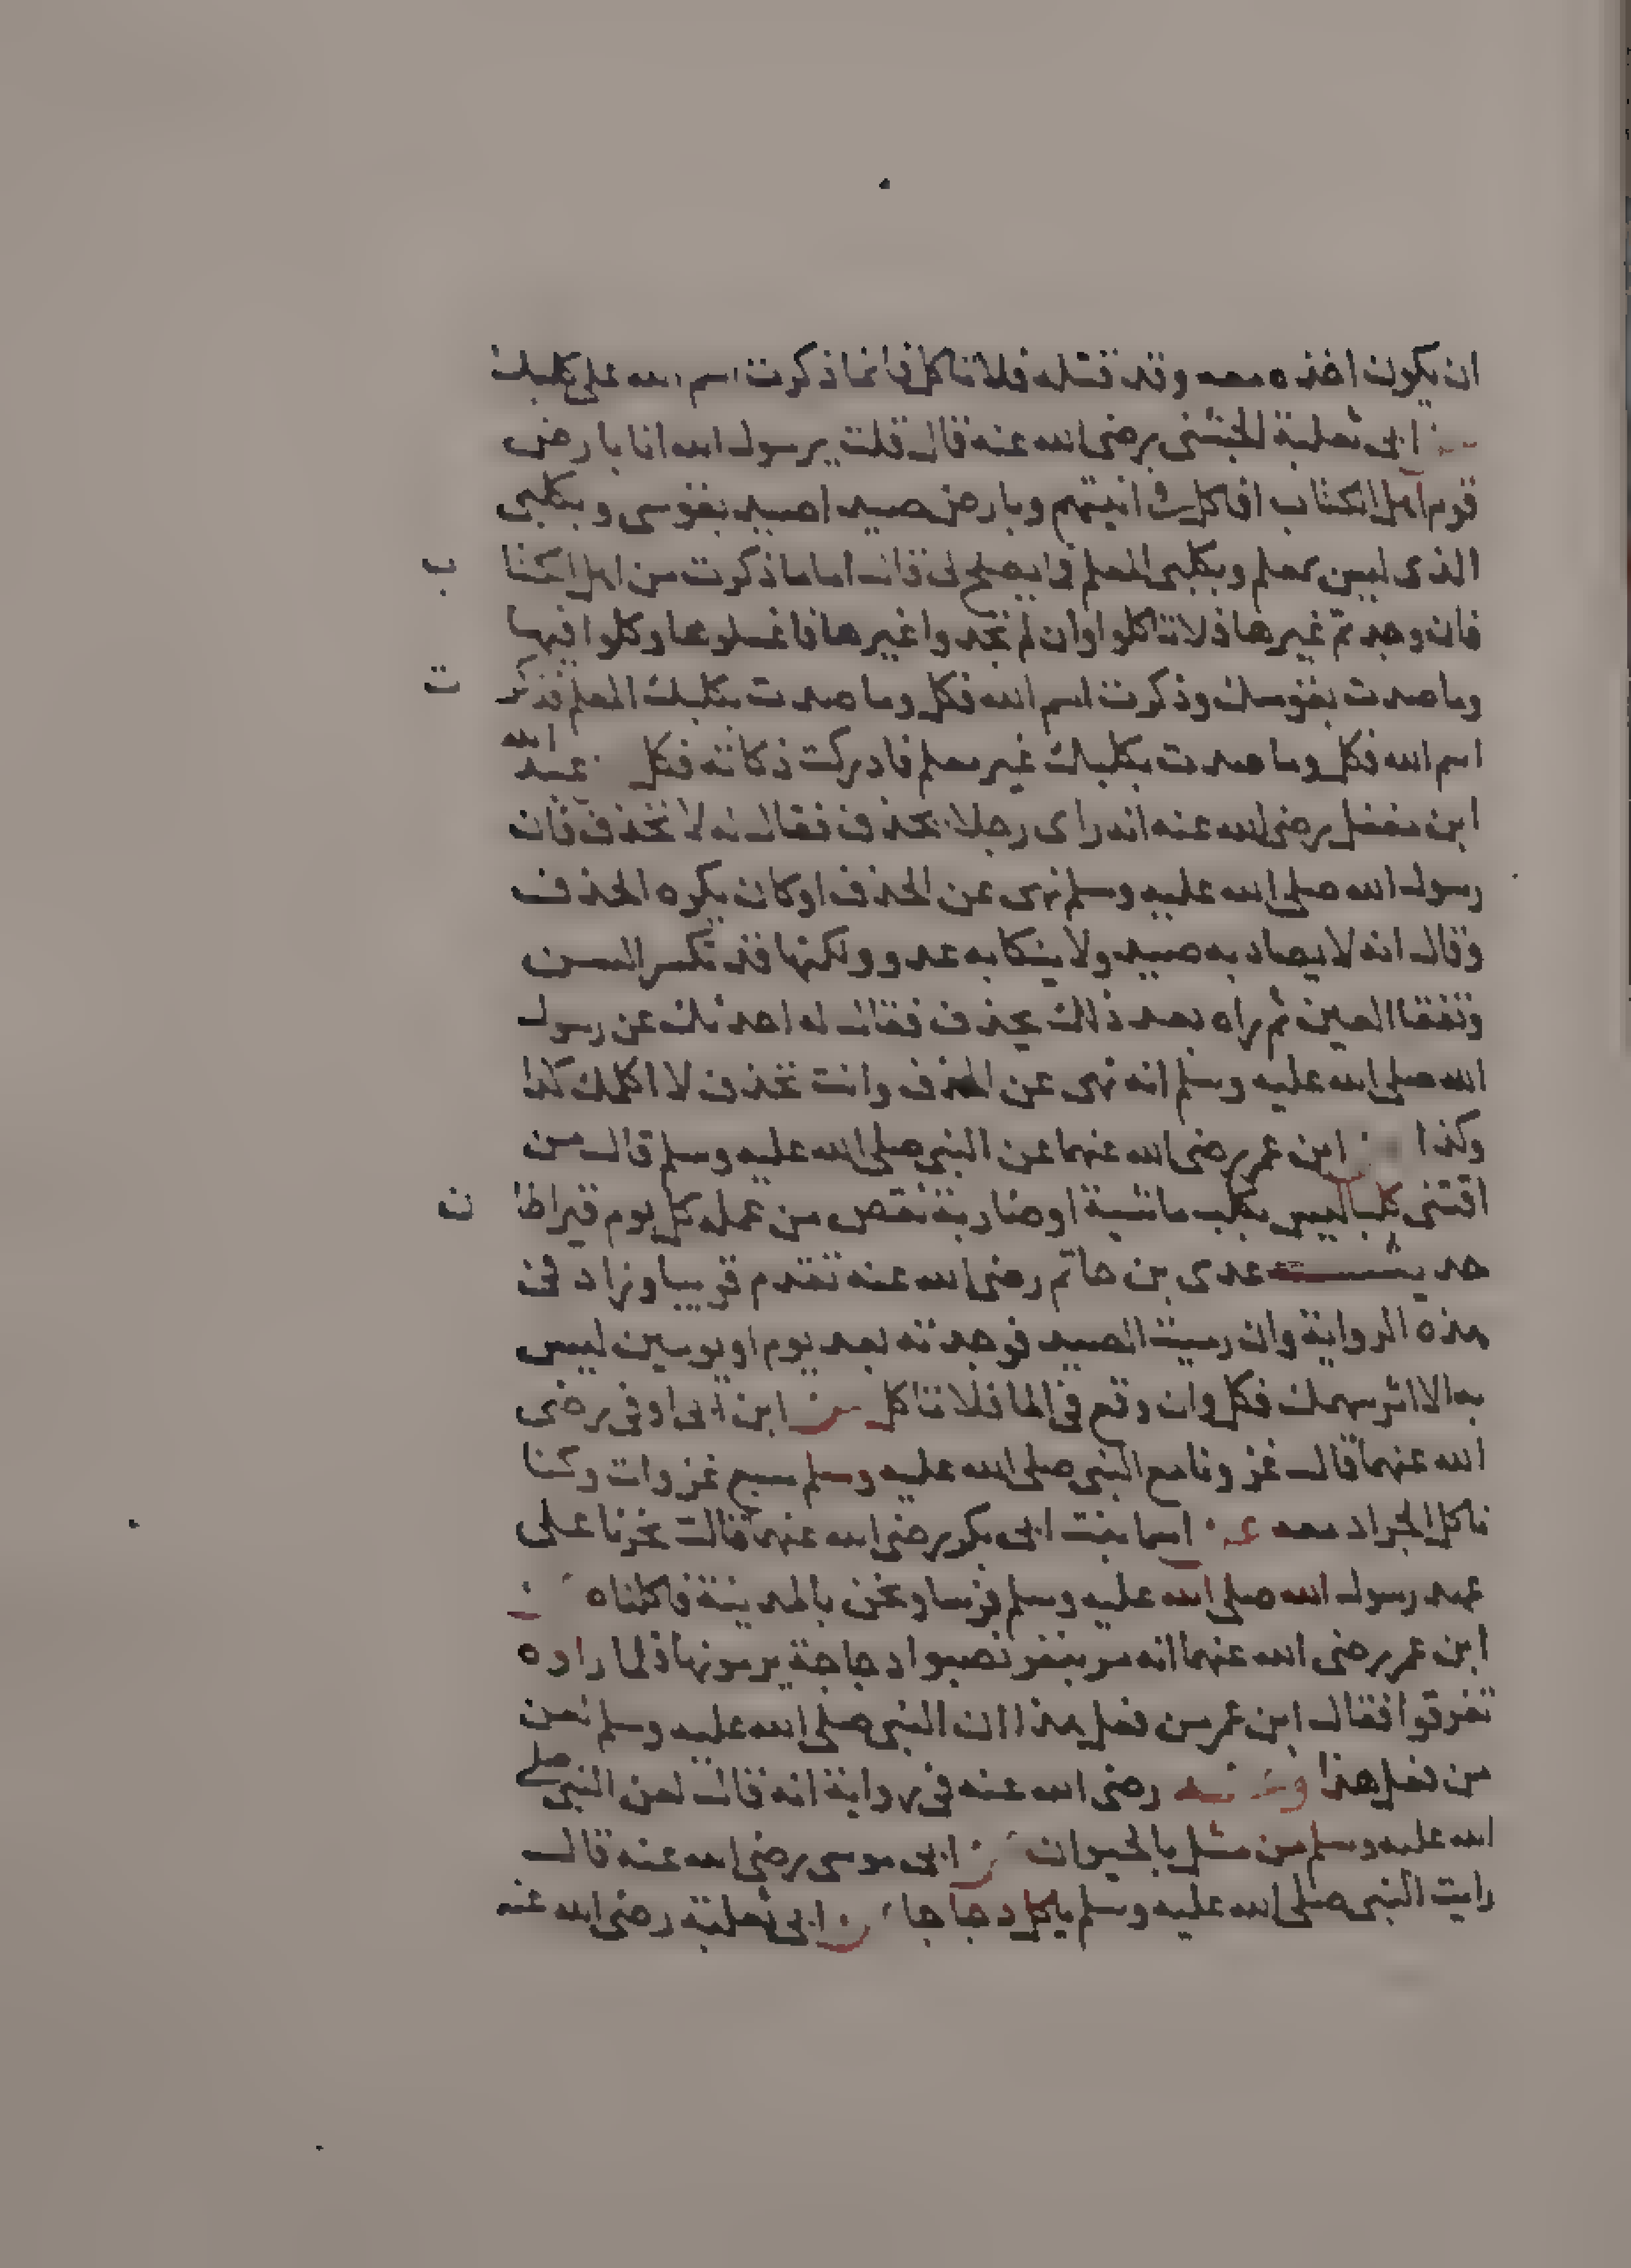 ان يكون اخذه معه وقد قتله فلا تاكل فانما ذكرت اسم الله على كلبك
عن ابى ثعلبة الخشنى رضى الله عنه قال قلت يرسول الله انا بارض
قوم اهل الكتاب افاكل فى انيتهم وبارض صيد اصيد بقوسى وبكلبى
الذى ليس بمعلم وبكلبى المعلم فما يصلح لى قال اما ما ذكرت من اهل الكتاب
فان وجدتم غيرها فلا تاكلوا وان لم تجدوا غيرها فاغسلوها وكلوا فيها
وما صدت بقوسك وذكرت اسم الله فكل وما صدت بكلبك المعلم فذكرت
اسم الله فكل وما صدت بكلبك غير معلم فادركت ذكاته فكل عن عبد الله
ابن مغفل رضى الله عنه انه راى رجلا يخذف فقال له لا تخذف فان
رسول الله صلى الله عليه وسلم نهى عن الخذف او كان يكره الخذف
وقال انه لا يصاد به صيد ولا ينكا به عدو ولكنها قد تكسر السن
وتفقا العين ثم راه بعد ذلك يخذف فقال له احدثك عن رسول
الله صلى الله عليه وسلم انه نهى عن الخذف وانت تخذف لا اكلمك كذا
وكذا عن ابن عمر رضى الله عنهما عن النبى صلى الله عليه وسلم قال من
اقتنى كلبا ليس بكلب ماشية او ضارية نقص من عمله كل يوم قيراطان
حديث عدى بن حاتم رضى الله عنه تقدم قريبا وزاد فى
هذه الرواية وان رميت الصيد فوجدته بعد يوم او يومين ليس
به الا اثر سهمك فكل وان وقع فى الما فلا تاكل عن ابن ابى اوفى رضى
الله عنهما قال غزونا مع النبى صلى الله عليه وسلم سبع غزوات وكنا
ناكل الجراد معه عن اسما بنت ابى بكر رضى الله عنهما قالت نحرنا على
عهد رسول الله صلى الله عليه وسلم فرسا ونحن بالمدينة فاكلناه عن
ابن عمر رضى الله عنهما انه مر بنفر نصبوا دجاجة يرمونها فلما راوه
تفرقوا فقال ابن عمر من فعل هذا ان النبى صلى الله عليه وسلم لعن
من فعل هذا وعنه رضى الله عنه فى رواية انه قال لعن النبى صلى
الله عليه وسلم من مثل بالحيوان عن ابى موسى رضى الله عنه قال
رايت النبى صلى الله عليه وسلم ياكل دجاجا عن ابى ثعلبة رضى الله عنه